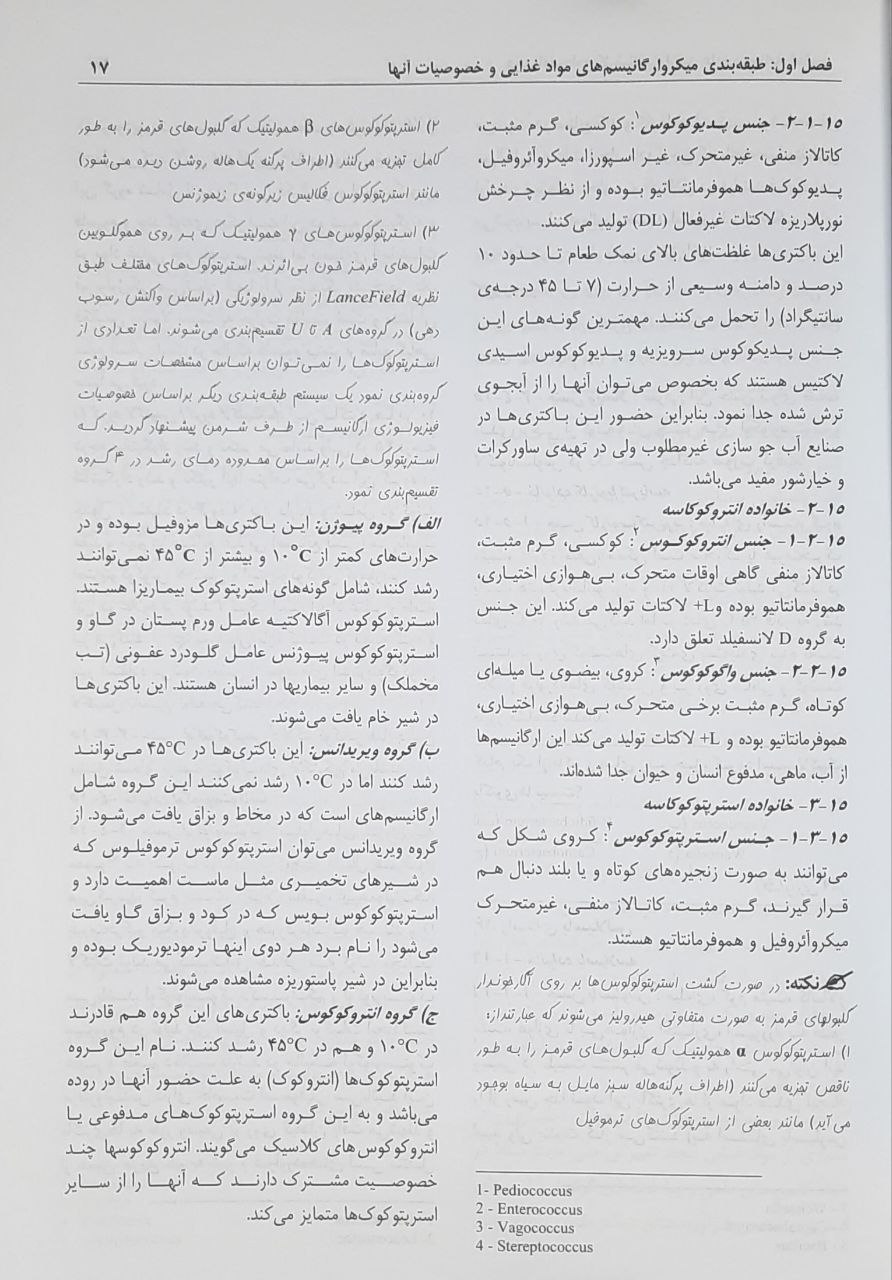 فصل اول: طبقه‌بندی میکروارگانیسم‌های مواد غذایی و خصوصیات آنها ۱۷
۱۵-۱-۲- جنس پدیوکوکوس۱: کوکسی، گرم مثبت،
کاتالاز منفی، غیرمتحرک، غیر اسپورزا، میکروآئروفیل،
پدیوکوک‌ها هموفرمانتاتیو بوده و از نظر چرخش
نورپلاریزه لاکتات غیرفعال (DL) تولید می‌کنند.
این باکتری‌ها غلظت‌های بالای نمک طعام تا حدود ۱۰
درصد و دامنه وسیعی از حرارت (۷ تا ۴۵ درجه‌ی
سانتیگراد) را تحمل می‌کنند. مهمترین گونه‌های این
جنس پدیکوکوس سرویزیه و پدیوکوکوس اسیدی
لاکتیس هستند که بخصوص می‌توان آنها را از آبجوی
ترش شده جدا نمود. بنابراین حضور این باکتری‌ها در
صنایع آب جو سازی غیرمطلوب ولی در تهیه‌ی ساورکرات
و خیارشور مفید می‌باشد.
۱۵-۲- خانواده انتروکوکاسه
۱۵-۲-۱- جنس انتروکوکوس۲: کوکسی، گرم مثبت،
کاتالاز منفی گاهی اوقات متحرک، بی‌هوازی اختیاری،
هموفرمانتاتیو بوده و L+ لاکتات تولید می‌کند. این جنس
به گروه D لانسفیلد تعلق دارد.
۱۵-۲-۲- جنس واگوکوکوس۳: کروی، بیضوی یا میله‌ای
کوتاه، گرم مثبت برخی متحرک، بی‌هوازی اختیاری،
هموفرمانتاتیو بوده و L+ لاکتات تولید می‌کند این ارگانیسم‌ها
از آب، ماهی، مدفوع انسان و حیوان جدا شده‌اند.
۱۵-۳- خانواده استرپتوکوکاسه
۱۵-۳-۱- جنس استرپتوکوکوس۴: کروی شکل که
می‌توانند به صورت زنجیره‌های کوتاه و یا بلند دنبال هم
قرار گیرند، گرم مثبت، کاتالاز منفی، غیرمتحرک
میکروآئروفیل و هموفرمانتاتیو هستند.
نکته: در صورت کشت استرپتوکوکوس‌ها بر روی آگارخوندار
گلبولهای قرمز به صورت متفاوتی هیدرولیز می‌شوند که عبارتنداز:
۱) استرپتوکوکوس α همولیتیک که گلبول‌های قرمز را به طور
ناقص تجزیه می‌کنند (اطراف پرگنه‌هاله سبز مایل به سیاه بوجود
می‌آید) مانند بعضی از استرپتوکوک‌های ترموفیل
1- Pediococcus
2 - Enterococcus
3 - Vagococcus
4 - Stereptococcus
۲) استرپتوکوکوس‌های β همولیتیک که گلبول‌های قرمز را به طور
کامل تجزیه می‌کنند (اطراف پرگنه یک‌هاله روشن دیده می‌شود)
مانند استرپتوکوکوس فکالیس زیرگونه‌ی زیموژنس
۳) استرپتوکوکوس‌های γ همولیتیک که بر روی هموگلوبین
گلبول‌های قرمز خون بی‌اثرند. استرپتوکوک‌های مختلف طبق
نظریه LanceField از نظر سرولوژیکی (براساس واکنش رسوب
دهی) در گروه‌های A تا U تقسیم‌بندی می‌شوند. اما تعدادی از
استرپتوکوک‌ها را نمی‌توان براساس مشخصات سرولوژی
گروه‌بندی نمود یک سیستم طبقه‌بندی دیگر براساس خصوصیات
فیزیولوژی ارگانیسم از طرف شرمن پیشنهاد گردید. که
استرپتوکوک‌ها را براساس محدوده دمای رشد در ۴ گروه
تقسیم‌بندی نمود.
الف) گروه پیوژن: این باکتری‌ها مزوفیل بوده و در
حرارت‌های کمتر از ۱۰°C و بیشتر از ۴۵°C نمی‌توانند
رشد کنند، شامل گونه‌های استرپتوکوک بیماریزا هستند.
استرپتوکوکوس آگالاکتیه عامل ورم پستان در گاو و
استرپتوکوکوس پیوژنس عامل گلودرد عفونی (تب
مخملک) و سایر بیماریها در انسان هستند. این باکتری‌ها
در شیر خام یافت می‌شوند.
ب) گروه ویریدانس: این باکتری‌ها در ۴۵°C می‌توانند
رشد کنند اما در ۱۰°C رشد نمی‌کنند این گروه شامل
ارگانیسم‌های است که در مخاط و بزاق یافت می‌شود. از
گروه ویریدانس می‌توان استرپتوکوکوس ترموفیلوس که
در شیرهای تخمیری مثل ماست اهمیت دارد و
استرپتوکوکوس بویس که در کود و بزاق گاو یافت
می‌شود را نام برد هر دوی اینها ترمودیوریک بوده و
بنابراین در شیر پاستوریزه مشاهده می‌شوند.
ج) گروه انتروکوکوس: باکتری‌های این گروه هم قادرند
در ۱۰°C و هم در ۴۵°C رشد کنند. نام این گروه
استرپتوکوک‌ها (انتروکوک) به علت حضور آنها در روده
می‌باشد و به این گروه استرپتوکوک‌های مدفوعی یا
انتروکوکوس‌های کلاسیک می‌گویند. انتروکوکوسها چند
خصوصیت مشترک دارند که آنها را از سایر
استرپتوکوک‌ها متمایز می‌کند.